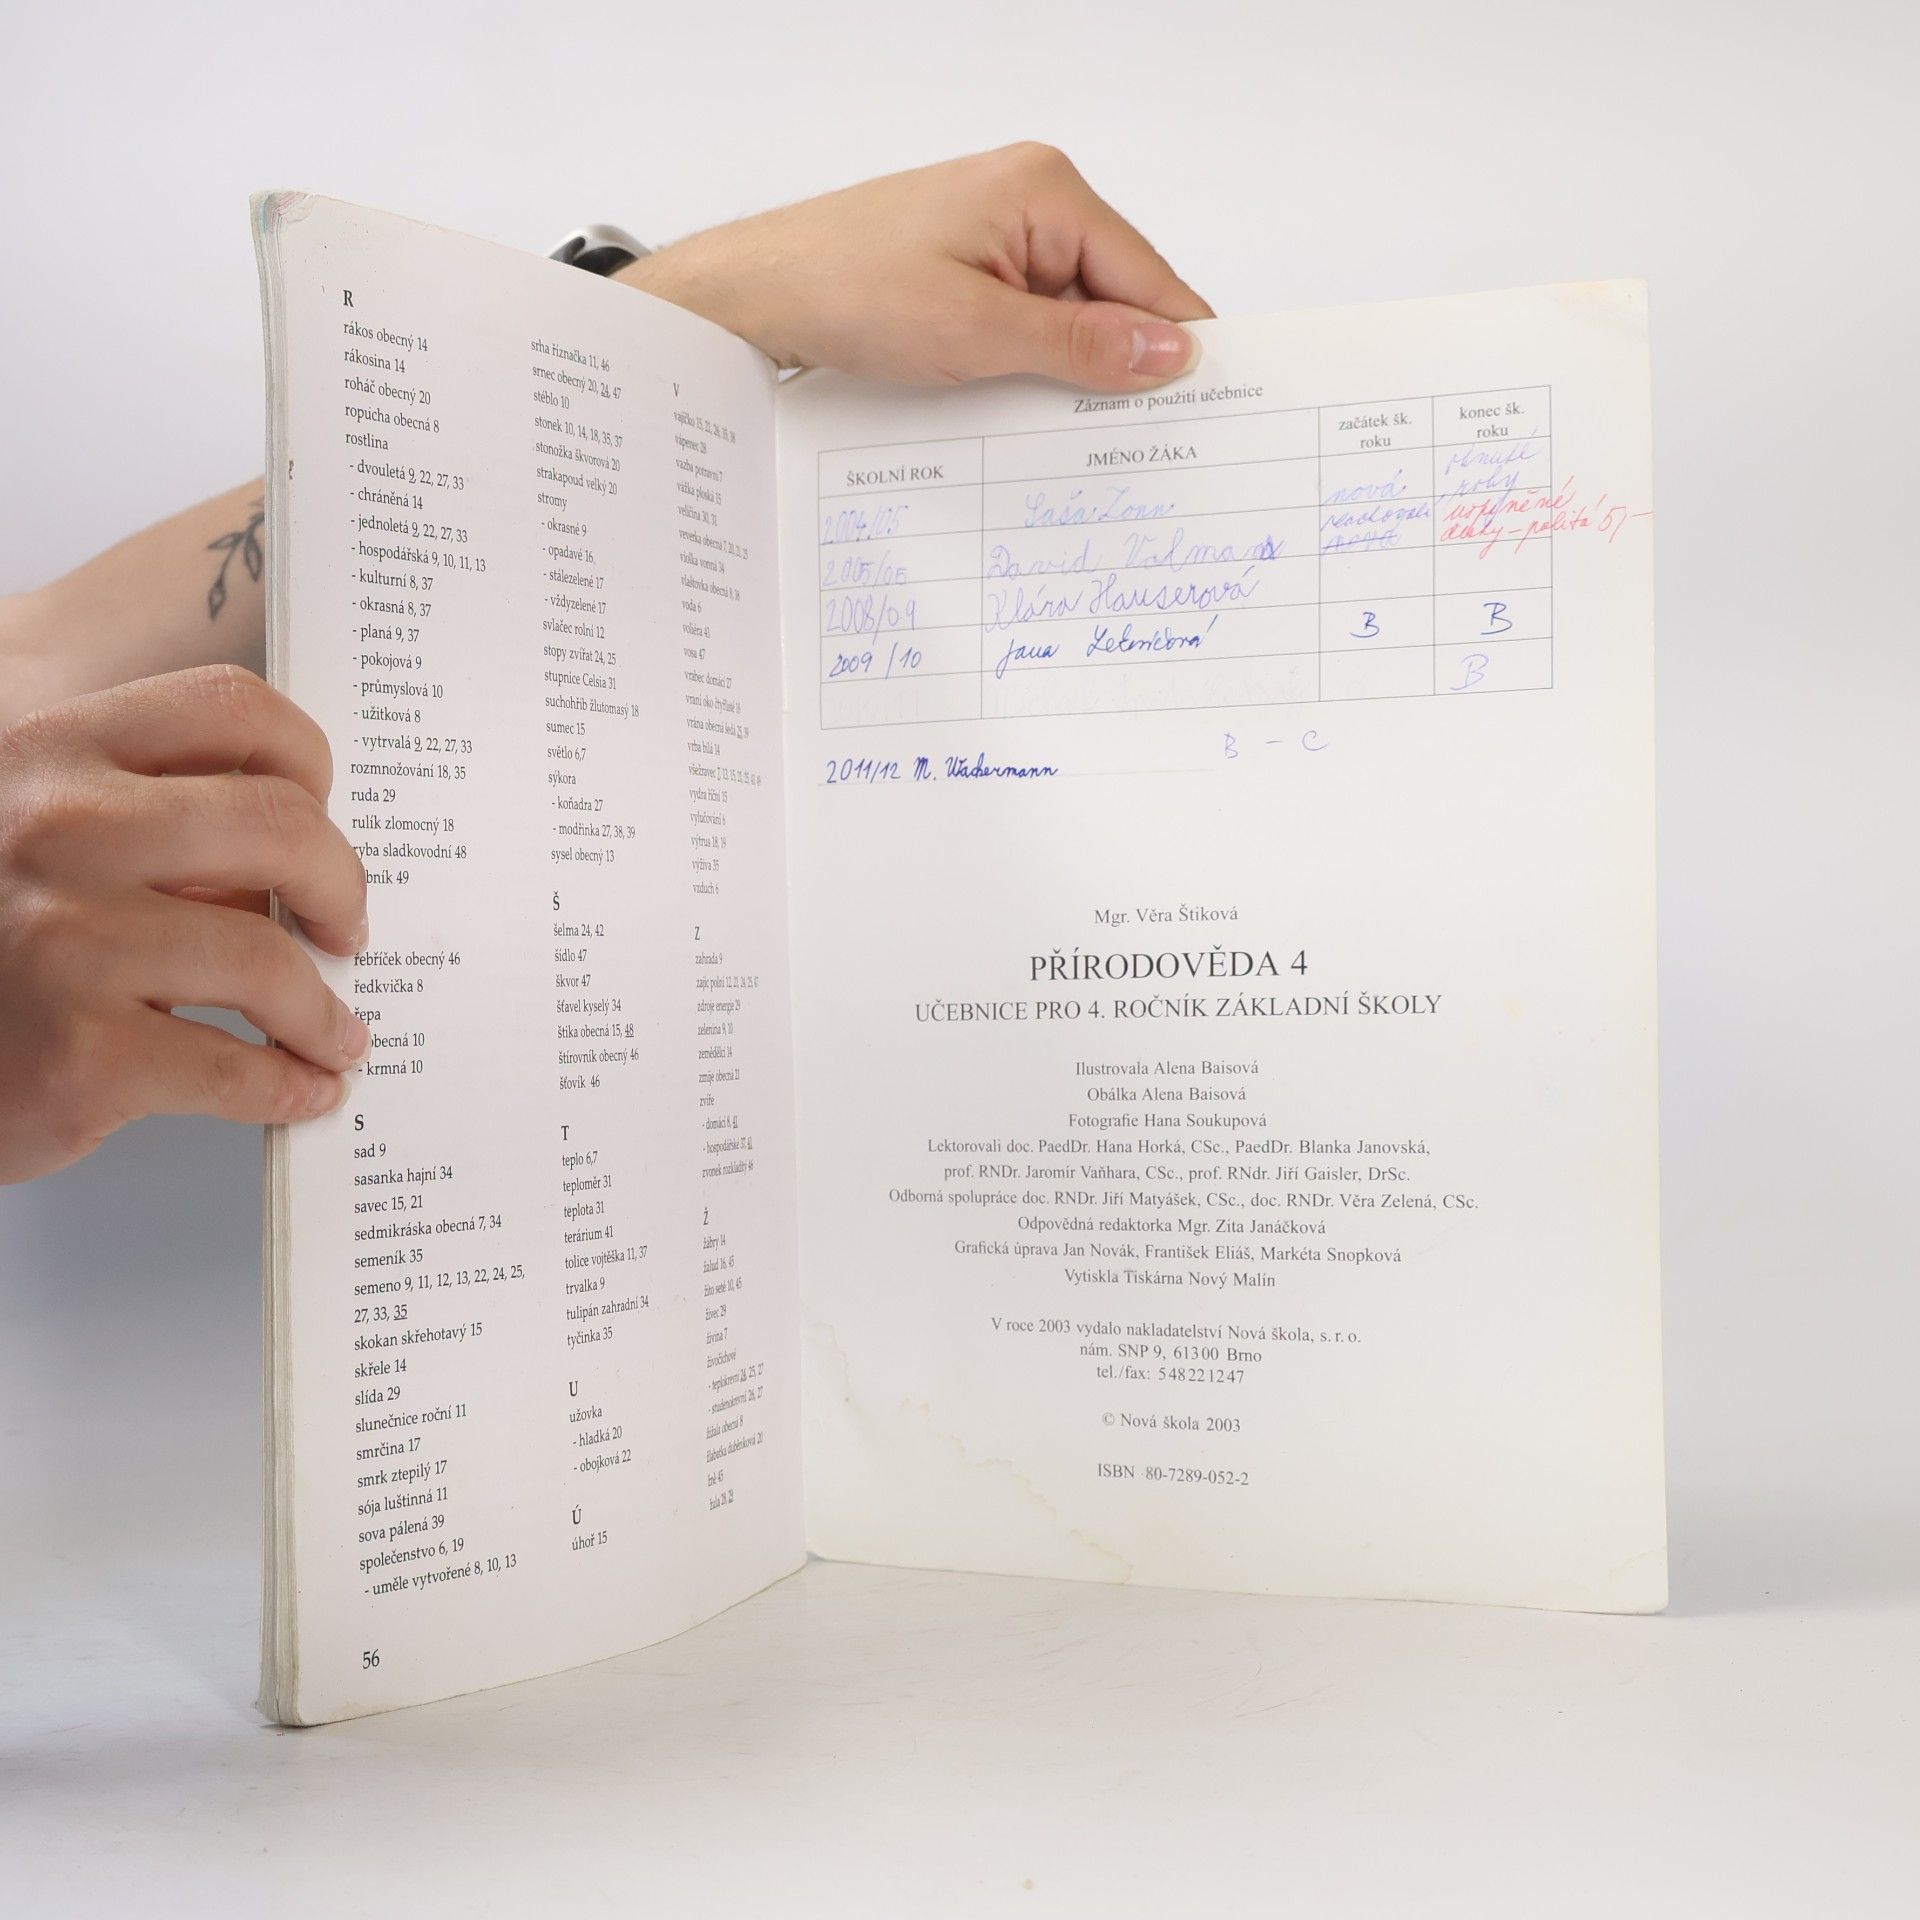 R
rákos obecný 14
rákosina 14
roháč obecný 20
ropucha obecná 8
rostlina
- dvouletá 9, 22, 27, 33
- chráněná 14
- jednoletá 9, 22, 27, 33
- hospodářská 9, 10, 11, 13
- kulturní 8, 37
- okrasná 8, 37
- planá 9, 37
- pokojová 9
- průmyslová 10
- užitková 8
- vytrvalá 9, 22, 27, 33
rozmnožování 18, 35
ruda 29
rulík zlomocný 18
ryba sladkovodní 48
bník 49
řebříček obecný 46
ředkvička 8
řepa
obecná 10
- krmná 10
S
sad 9
sasanka hajní 34
savec 15, 21
sedmikráska obecná 7, 34
semeník 35
semeno 9, 11, 12, 13, 22, 24, 25,
27, 33, 35
skokan skřehotavý 15
skřele 14
slída 29
slunečnice roční 11
smrčina 17
smrk ztepilý 17
sója luštinná 11
sova pálená 39
společenstvo 6, 19
- uměle vytvořené 8, 10, 13
56
srha říznačka 11, 46
srnec obecný 20, 24, 47
stéblo 10
stonek 10, 14, 18, 35, 37
stonožka škvorová 20
strakapoud velký 20
stromy
- okrasné 9
- opadavé 16
- stálezelené 17
- vždyzelené 17
svlačec rolní 12
stopy zvířat 24, 25
stupnice Celsia 31
suchohřib žlutomasý 18
sumec 15
světlo 6,7
sýkora
- koňadra 27
- modřinka 27, 38, 39
sysel obecný 13
Š
šelma 24, 42
šídlo 47
škvor 47
šťavel kyselý 34
štika obecná 15, 48
štírovník obecný 46
šťovík 46
T
teplo 6,7
teploměr 31
teplota 31
terárium 41
tolice vojtěška 11, 37
trvalka 9
tulipán zahradní 34
tyčinka 35
U
užovka
- hladká 20
- obojková 22
Ú
úhoř 15
V
vajíčko 15, 22, 26, 35, 38
vápenec 28
vazba potravní 7
vážka ploská 15
veličina 30, 31
veverka obecná 7, 20, 21, 25
violka vonná 34
vlaštovka obecná 8, 38
voda 6
voliéra 41
vosa 47
vrabec domácí 27
vraní oko čtyřlisté 18
vrána obecná šedá 25, 39
vrba bílá 14
všežravec 7, 13, 15, 21, 25, 41, 49
vydra říční 15
vylučování 6
výtrus 18, 19
výživa 35
vzduch 6
Z
zahrada 9
zajíc polní 12, 21, 24, 25, 47
zdroje energie 29
zelenina 9, 10
zemědělci 14
zmije obecná 21
zvíře
- domácí 8, 41
- hospodářské 37, 41
zvonek rozkladitý 46
Ž
žábry 14
žalud 16, 45
žito seté 10, 45
živec 29
živina 7
živočichové
- teplokrevní 26, 25, 27
- studenokrevní 26, 27
žížala obecná 8
žlabatka duběnková 20
žně 45
žula 28, 29
Záznam o použití učebnice
ŠKOLNÍ ROK JMÉNO ŽÁKA začátek šk. roku konec šk. roku
2004/05 Saša Zonn nová rohy
2005/06 David Volmann nová
2008/09 Klára Hauserová
2009/10 Jana B B
B
B - C
2011/12 M. Wackermann
Mgr. Věra Štiková
PŘÍRODOVĚDA 4
UČEBNICE PRO 4. ROČNÍK ZÁKLADNÍ ŠKOLY
Ilustrovala Alena Baisová
Obálka Alena Baisová
Fotografie Hana Soukupová
Lektorovali doc. PaedDr. Hana Horká, CSc., PaedDr. Blanka Janovská,
prof. RNDr. Jaromír Vaňhara, CSc., prof. RNdr. Jiří Gaisler, DrSc.
Odborná spolupráce doc. RNDr. Jiří Matyášek, CSc., doc. RNDr. Věra Zelená, CSc.
Odpovědná redaktorka Mgr. Zita Janáčková
Grafická úprava Jan Novák, František Eliáš, Markéta Snopková
Vytiskla Tiskárna Nový Malín
V roce 2003 vydalo nakladatelství Nová škola, s. r. o.
nám. SNP 9, 613 00 Brno
tel./fax: 548 221 247
© Nová škola 2003
ISBN 80-7289-052-2